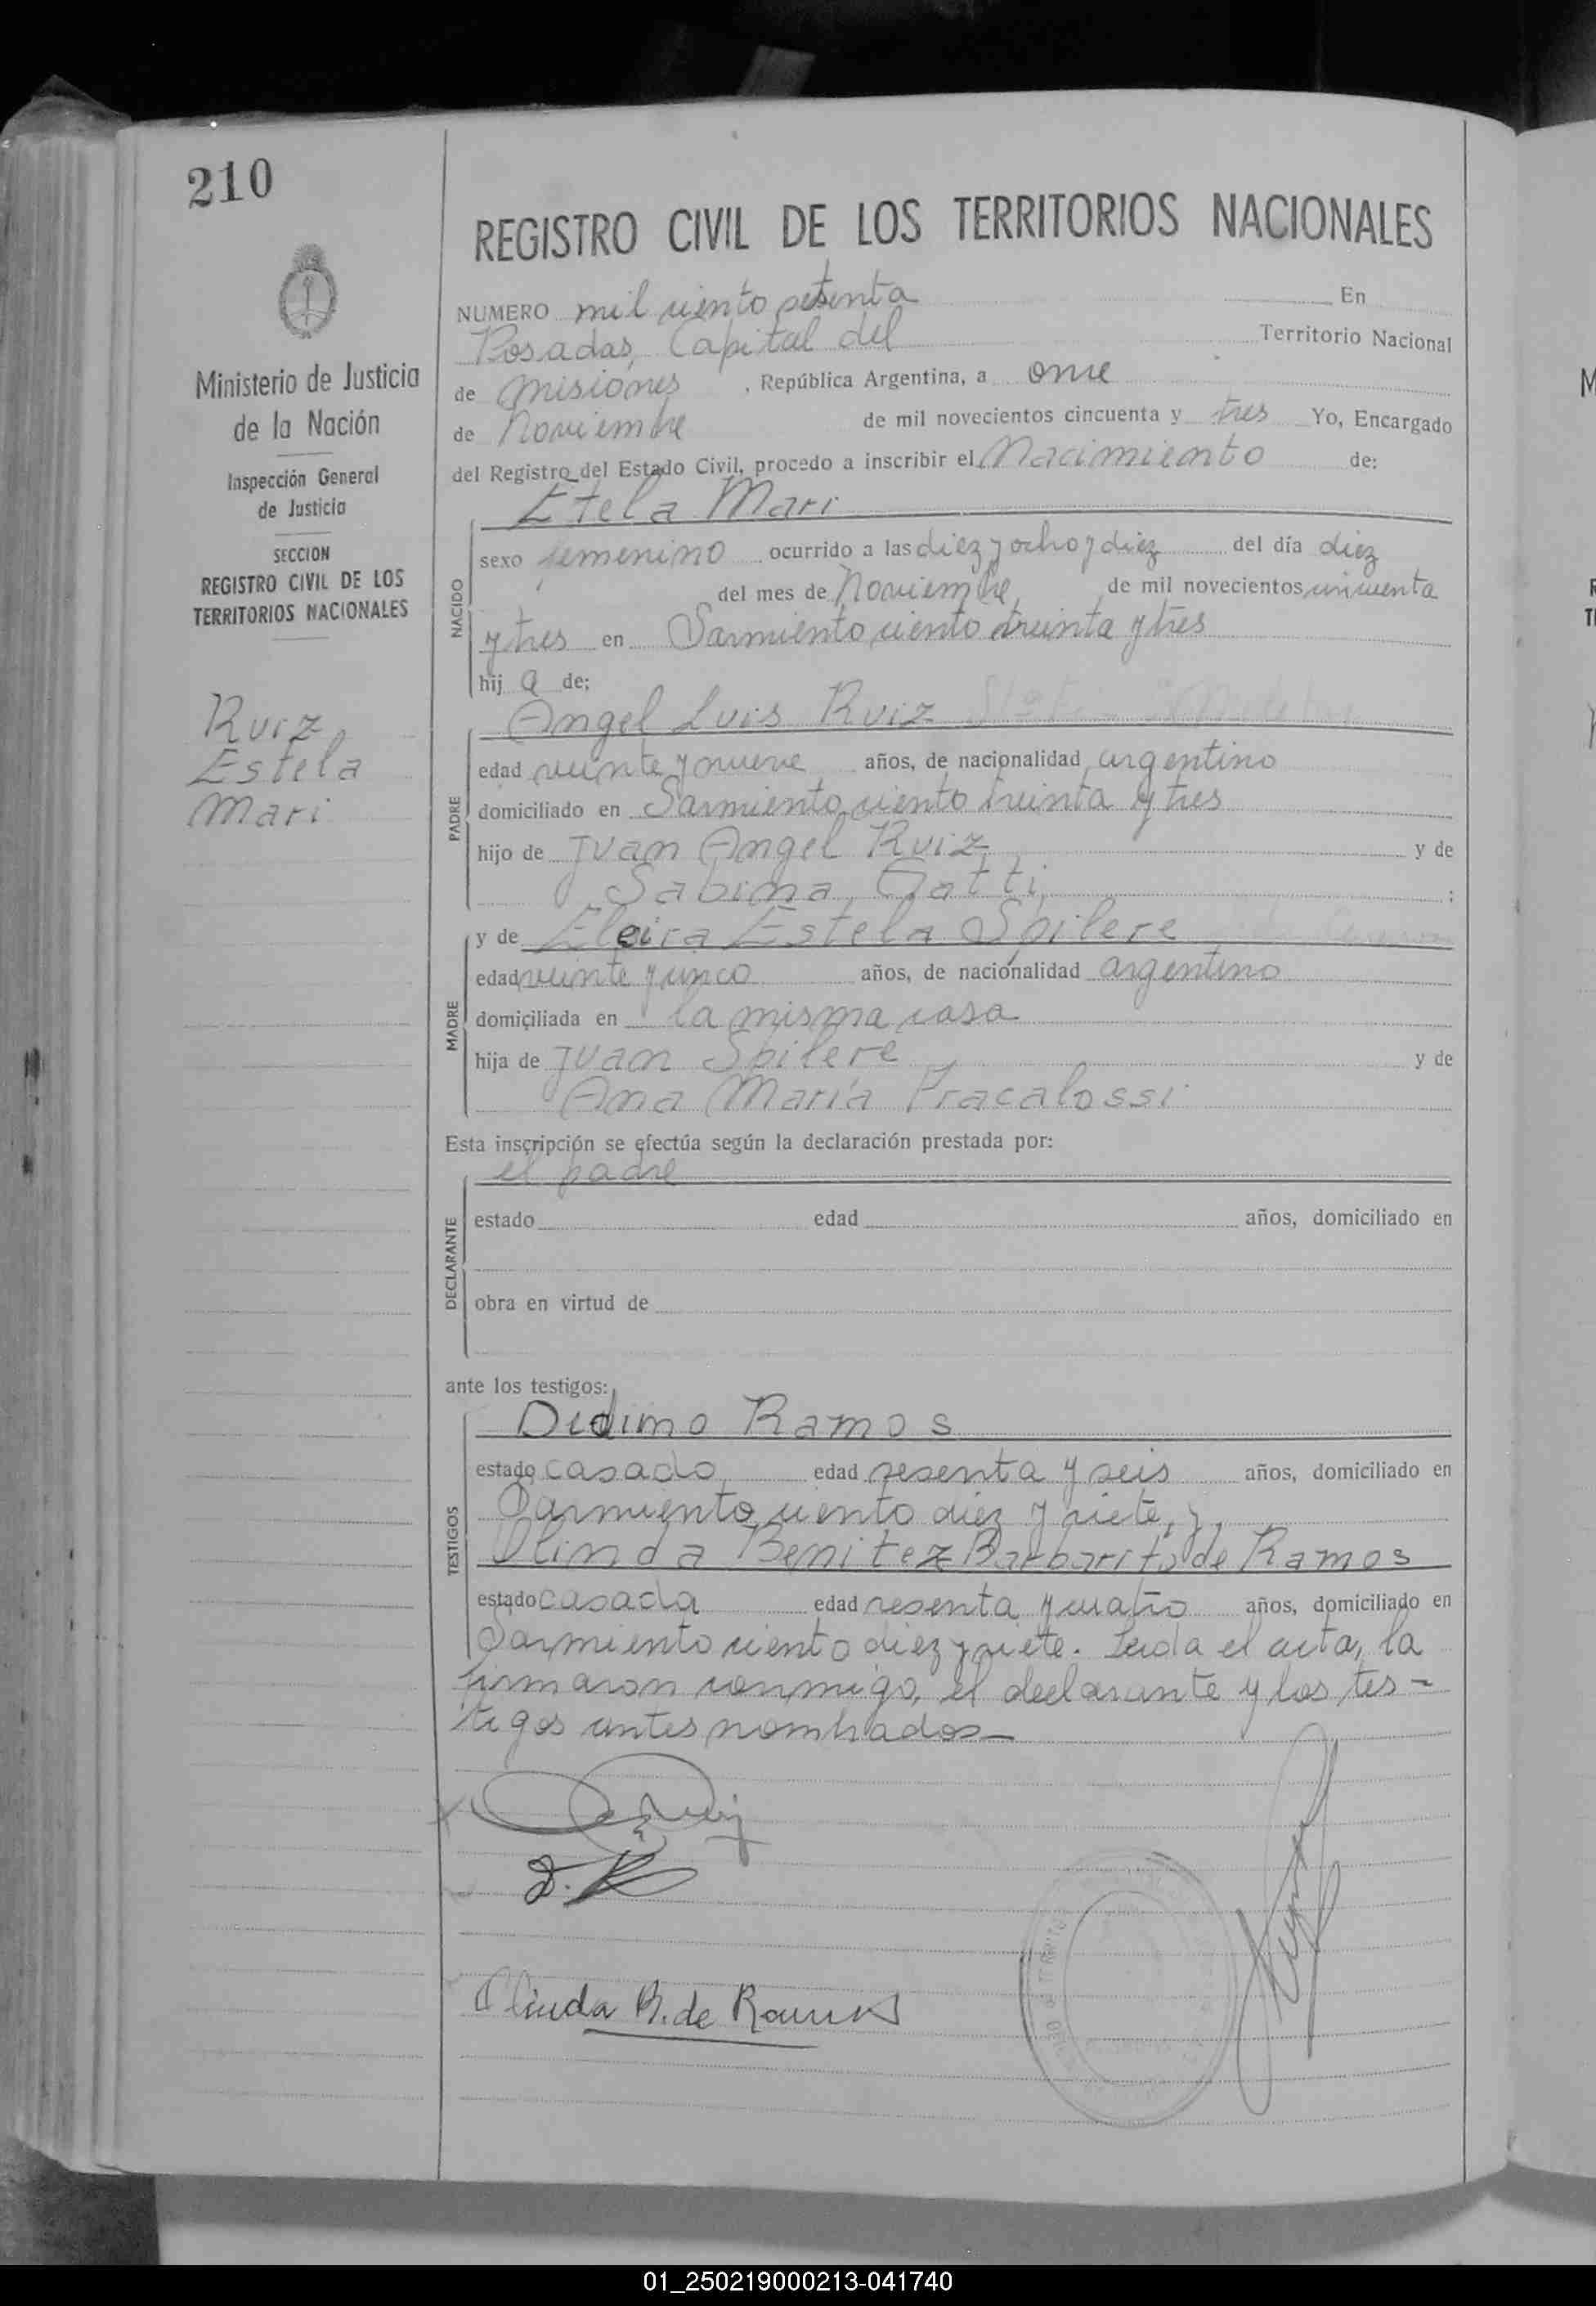 210
Ministerio de Justicia
de la Nación
Inspección General
de Justicia
SECCION
REGISTRO CIVIL DE LOS
TERRITORIOS NACIONALES
Ruiz
Estela
Mari
REGISTRO CIVIL DE LOS TERRITORIOS NACIONALES
NUMERO mil ciento setenta En
Posadas, Capital del Territorio Nacional
de Misiones, República Argentina, a once
de Noviembre de mil novecientos cincuenta y tres Yo, Encargado
del Registro del Estado Civil, procedo a inscribir el Nacimiento de:
NACIDO
Etela Mari
sexo femenino ocurrido a las diez y ocho y diez del día diez
del mes de Noviembre, de mil novecientos cincuenta
y tres en Sarmiento ciento treinta y tres
hij a de:
PADRE
Angel Luis Ruiz
edad veinte y nueve años, de nacionalidad argentino
domiciliado en Sarmiento ciento treinta y tres
hijo de Juan Angel Ruiz y de
Sabina Gatti ;
MADRE
y de Elcira Estela Spilere
edad veinte y cinco años, de nacionalidad argentino
domiciliada en la misma casa
hija de Juan Spilere y de
Ana María Fracalossi
Esta inscripción se efectúa según la declaración prestada por:
DECLARANTE
el padre
estado edad años, domiciliado en
obra en virtud de
ante los testigos:
TESTIGOS
Didimo Ramos
estado casado edad sesenta y seis años, domiciliado en
Sarmiento ciento diez y siete, y,
Olinda Benitez Barbarito de Ramos
estado casada edad sesenta y cuatro años, domiciliado en
Sarmiento ciento diez y siete. Leida el acta, la
firmaron conmigo, el declarante y los tes-
tigos antes nombrados—
D. R
Olinda B. de Ramos
01_250219000213-041740